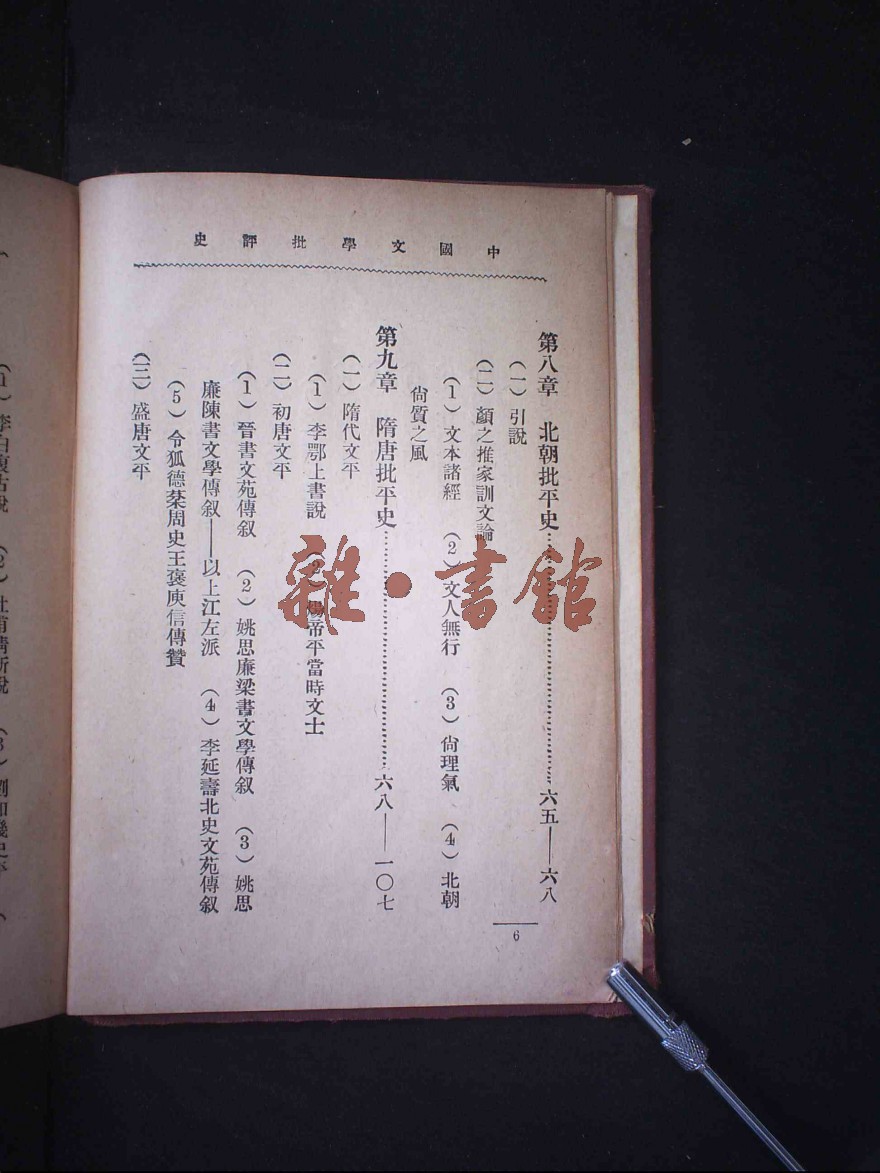 中國文學批評史
第八章　北朝批平史……六五——六八
（一）引說
（二）顏之推家訓文論
（1）文本諸經　（2）文人無行　（3）尙理氣　（4）北朝
尙質之風
第九章　隋唐批平史……六八——一〇七
（一）隋代文平
（1）李鄂上書說　（2）煬帝平當時文士
（二）初唐文平
（1）晉書文苑傳叙　（2）姚思廉梁書文學傳叙　（3）姚思
廉陳書文學傳叙——以上江左派　（4）李延壽北史文苑傳叙
（5）令狐德棻周史王褒庾信傳贊
（三）盛唐文平
6
（1）李白復古說　（2）杜甫淸新說　（3）劉知幾史平
雜·書館